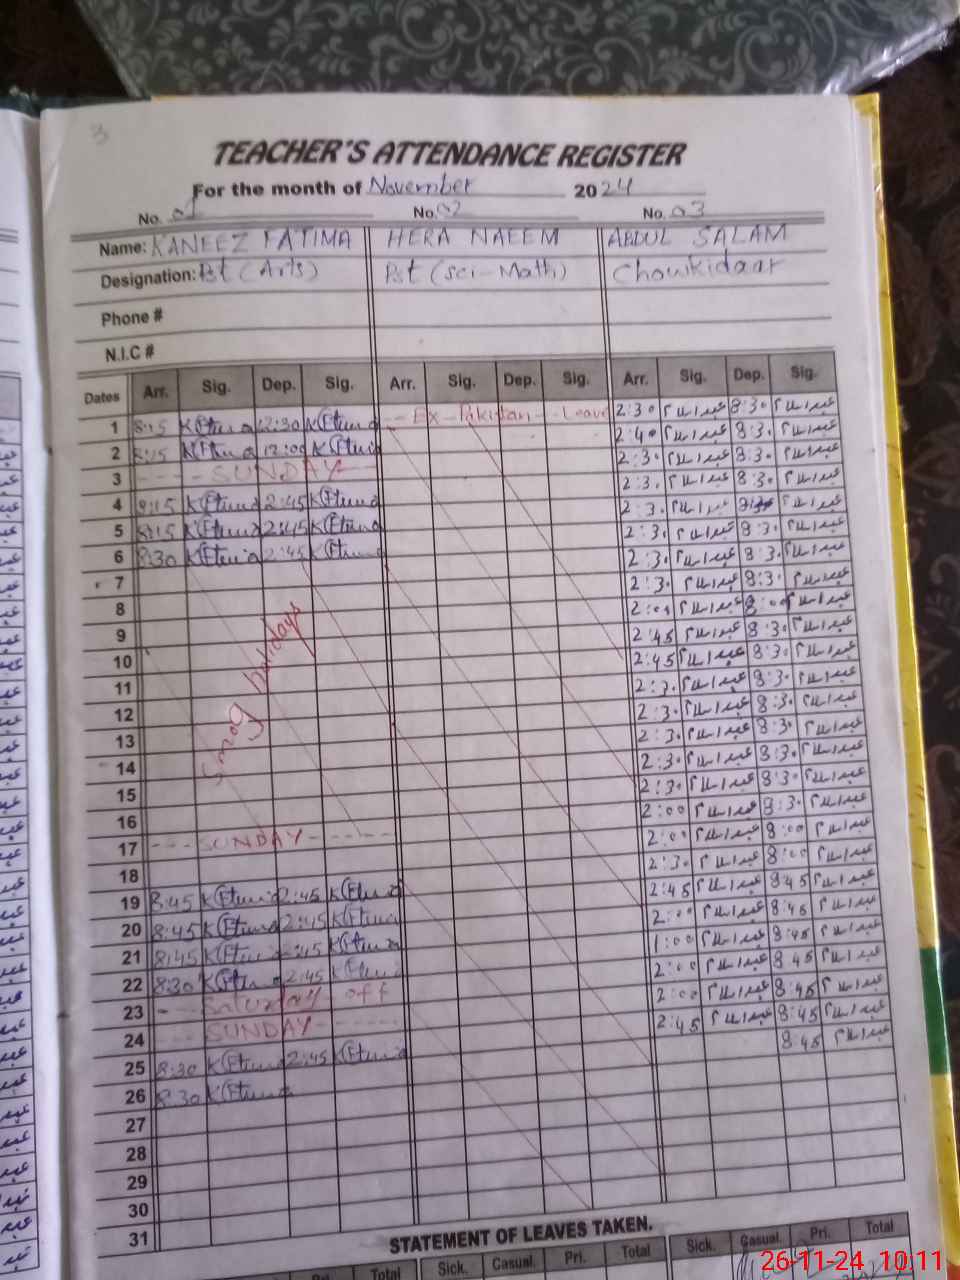 3
TEACHER'S ATTENDANCE REGISTER
For the month of November 2024
No. 01 No. 02 No. 03
Name: KANEEZ FATIMA HERA NAEEM ABDUL SALAM
Designation: Pst (Arts) Pst (sci-Math) Chowkidaar
Phone #
N.I.C #
Dates Arr. Sig. Dep. Sig. Arr. Sig. Dep. Sig. Arr. Sig. Dep. Sig.
1 8:15 KFtima 12:30 KFtima Ex-Pakistan Leave 2:30 عبدالسلام 8:30 عبدالسلام
2 8:15 KFtima 12:00 KFtima 2:40 عبدالسلام 8:30 عبدالسلام
3 SUNDAY 2:30 عبدالسلام 8:30 عبدالسلام
4 8:15 KFtima 2:45 KFtima 2:30 عبدالسلام 8:30 عبدالسلام
5 8:15 KFtima 2:45 KFtima 2:30 عبدالسلام عبدالسلام
6 8:30 KFtima 2:45 KFtima 2:30 عبدالسلام 8:30 عبدالسلام
7 2:30 عبدالسلام 8:30 عبدالسلام
8 2:30 عبدالسلام 8:30 عبدالسلام
9 2:00 عبدالسلام 8:00 عبدالسلام
10 2:45 عبدالسلام 8:30 عبدالسلام
11 2:45 عبدالسلام 8:30 عبدالسلام
Smog holidays
12 2:30 عبدالسلام 8:30 عبدالسلام
13 2:30 عبدالسلام 8:30 عبدالسلام
14 2:30 عبدالسلام 8:30 عبدالسلام
15 2:30 عبدالسلام 8:30 عبدالسلام
16 2:30 عبدالسلام 8:30 عبدالسلام
17 SUNDAY 2:00 عبدالسلام 8:30 عبدالسلام
18 2:00 عبدالسلام 8:00 عبدالسلام
19 8:45 KFtima 2:45 KFtima 2:30 عبدالسلام 8:00 عبدالسلام
20 8:45 KFtima 2:45 KFtima 2:45 عبدالسلام 8:45 عبدالسلام
21 8:45 KFtima 2:45 KFtima 2:00 عبدالسلام 8:45 عبدالسلام
22 8:30 KFtima 2:45 KFtima 1:00 عبدالسلام 8:45 عبدالسلام
23 Saturday off 2:00 عبدالسلام 8:45 عبدالسلام
24 SUNDAY 2:00 عبدالسلام 8:45 عبدالسلام
25 8:30 KFtima 2:45 KFtima 2:45 عبدالسلام 8:45 عبدالسلام
26 8:30 KFtima 8:45 عبدالسلام
27
28
29
30
31
STATEMENT OF LEAVES TAKEN.
Pri. Total Sick. Casual. Pri. Total Sick. Casual. Pri. Total
26-11-24 10:11